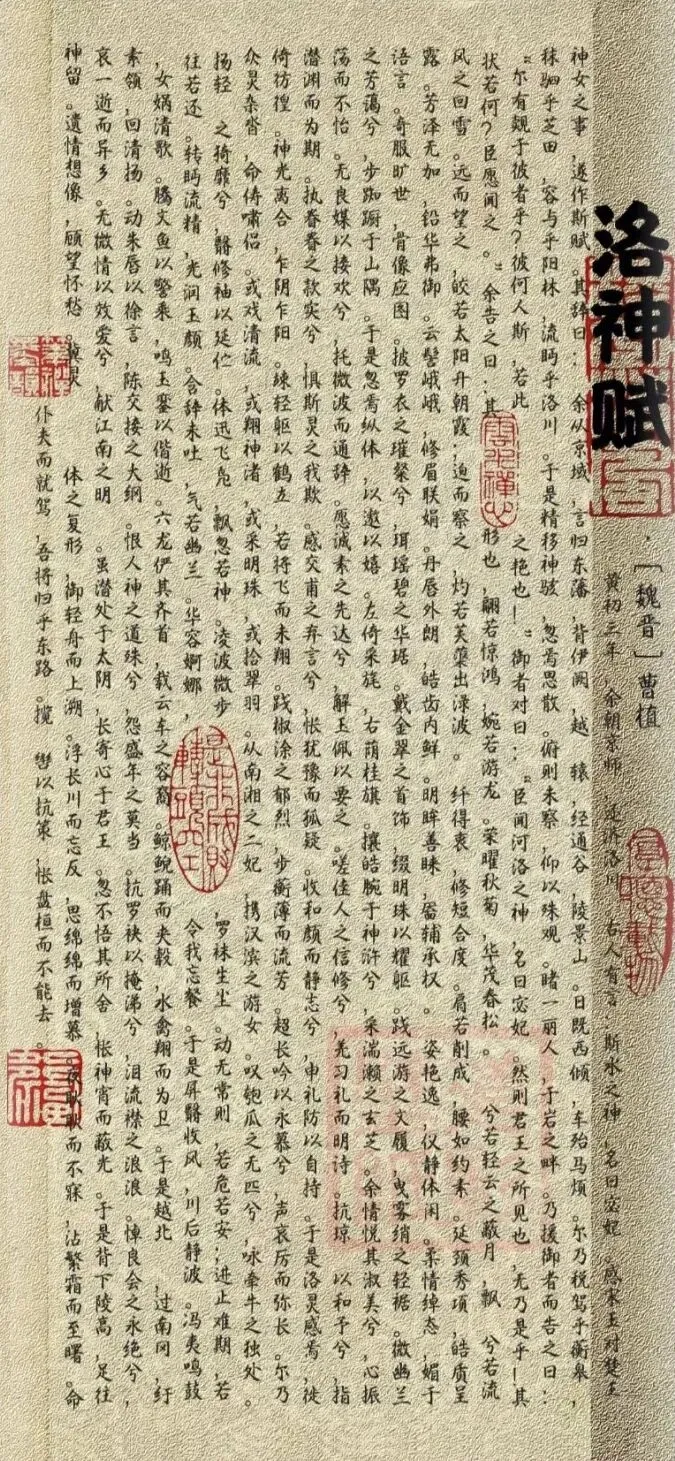 洛神赋
，［魏晋］曹植
黄初三年，余朝京师，还济洛川。古人有言，斯水之神，名曰宓妃。感宋玉对楚王
神女之事，遂作斯赋。其辞曰：余从京域，言归东藩，背伊阙，越 辕，经通谷，陵景山。日既西倾，车殆马烦。尔乃税驾乎蘅皋，
秣驷乎芝田，容与乎阳林，流眄乎洛川。于是精移神骇，忽焉思散。俯则未察，仰以殊观。睹一丽人，于岩之畔。乃援御者而告之曰：
“尔有觌于彼者乎？彼何人斯，若此 之艳也！”御者对曰：“臣闻河洛之神，名曰宓妃。然则君王之所见也，无乃是乎！其
状若何？臣愿闻之。”余告之曰：其 形也，翩若惊鸿，婉若游龙。荣曜秋菊，华茂春松。 兮若轻云之蔽月，飘 兮若流
风之回雪。远而望之，皎若太阳升朝霞；迫而察之，灼若芙蕖出渌波。 纤得衷，修短合度。肩若削成，腰如约素。延颈秀项，皓质呈
露。芳泽无加，铅华弗御。云髻峨峨，修眉联娟。丹唇外朗，皓齿内鲜。明眸善睐，靥辅承权。 姿艳逸，仪静体闲。柔情绰态，媚于
语言。奇服旷世，骨像应图。披罗衣之璀粲兮，珥瑶碧之华琚。戴金翠之首饰，缀明珠以耀躯。践远游之文履，曳雾绡之轻裾。微幽兰
之芳蔼兮，步踟蹰于山隅。于是忽焉纵体，以遨以嬉。左倚采旄，右荫桂旗。攘皓腕于神浒兮，采湍濑之玄芝。余情悦其淑美兮，心振
荡而不怡。无良媒以接欢兮，托微波而通辞。愿诚素之先达兮，解玉佩以要之。嗟佳人之信修兮，羌习礼而明诗。抗琼 以和予兮，指
潜渊而为期。执眷眷之款实兮，惧斯灵之我欺。感交甫之弃言兮，怅犹豫而狐疑。收和颜而静志兮，申礼防以自持。于是洛灵感焉，徙
倚彷徨。神光离合，乍阴乍阳。竦轻躯以鹤立，若将飞而未翔。践椒涂之郁烈，步蘅薄而流芳。超长吟以永慕兮，声哀厉而弥长。尔乃
众灵杂沓，命俦啸侣。或戏清流，或翔神渚，或采明珠，或拾翠羽。从南湘之二妃，携汉滨之游女。叹匏瓜之无匹兮，咏牵牛之独处。
扬轻 之猗靡兮，翳修袖以延伫。体迅飞凫，飘忽若神。凌波微步 罗袜生尘。动无常则，若危若安；进止难期，若
往若还。转眄流精，光润玉颜。含辞未吐，气若幽兰。华容婀娜， 令我忘餐。于是屏翳收风，川后静波。冯夷鸣鼓
，女娲清歌。腾文鱼以警乘，鸣玉銮以偕逝。六龙俨其齐首，载云车之容裔。鲸鲵踊而夹毂，水禽翔而为卫。于是越北 ，过南冈，纡
素领，回清扬。动朱唇以徐言，陈交接之大纲。恨人神之道殊兮，怨盛年之莫当。抗罗袂以掩涕兮，泪流襟之浪浪。悼良会之永绝兮，
哀一逝而异乡。无微情以效爱兮，献江南之明 。虽潜处于太阴，长寄心于君王。忽不悟其所舍，怅神宵而蔽光。于是背下陵高，足往
神留。遗情想像，顾望怀愁。冀灵 体之复形，御轻舟而上溯。浮长川而忘反，思绵绵而增慕。夜耿耿而不寐，沾繁霜而至曙。命
仆夫而就驾，吾将归乎东路。揽 辔以抗策，怅盘桓而不能去。
厚德载物
云水禅心
是非成敗轉頭空
福